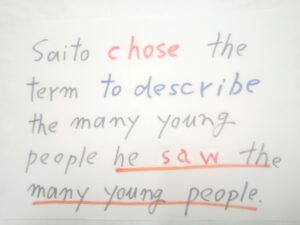 Saito chose the
term to describe
the many young
people he saw the
many young people.